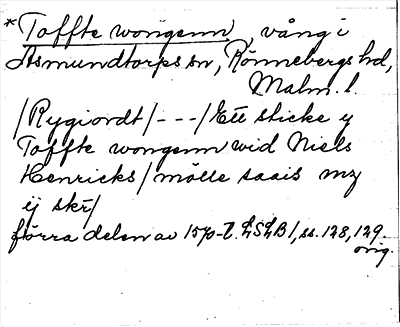 *Toffte wongenn, vång i
Asmundtorps sn, Rönnebergs hd,
Malm. l.
/Rygiordt/---/Ett sticke y
Toffte wongenn wid Niels
Henricks/mölle saais mz
ij skr/
förra delen av 1570-t. LSLB1, ss. 128, 129.
orig.